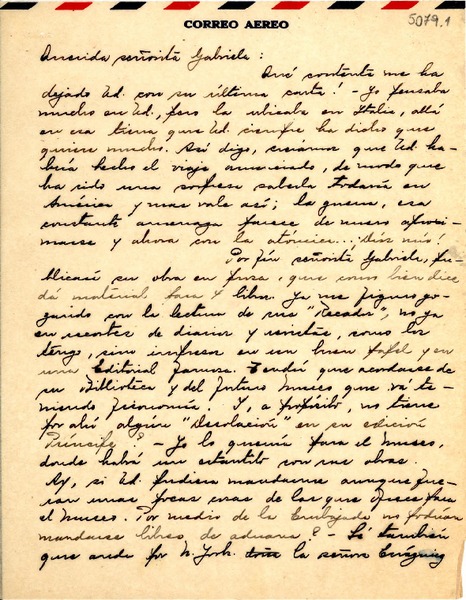 CORREO AEREO
5079.1
Querida señorita Gabriela :
Qué contenta me ha
dejado Ud. con su última carta! - Yo pensaba
mucho en Ud., pero la ubicaba en Italia, allá
en esa tierra que Ud. siempre ha dicho que
quiere mucho. Así digo, creíamos que Ud. ha-
bría hecho el viaje anunciado, de modo que
ha sido una sorpresa saberla todavía en
América y mas vale así; la guerra, esa
constante amenaza parece de nuevo aproxi-
marse y ahora con la atómica... Dios mío!
Por fin señorita Gabriela, pu-
blicará su obra en prosa, que como bien dice
dá material para 4 libros. Ya me figuro go-
zando con la lectura de sus "Recados", no ya
en recortes de diarios y revistas, como los
tengo, sino impresos en un buen papel y en
una Editorial famosa. Tendrá que acordarse de
su Biblioteca y del futuro Museo que vá te-
niendo fisonomía. Y, a propósito, no tiene
por ahí algún "Desolación" en su edición
Príncipe? - Yo lo quería para el Museo,
donde habrá un estantito con sus obras.
Ay, si Ud. pudiera mandarme aunque fue-
ran unas pocas cosas de las que ofrece para
el Museo. Por medio de la Embajada no podrían
mandarse libres de aduana? - Sé también
que anda por N. York la señora